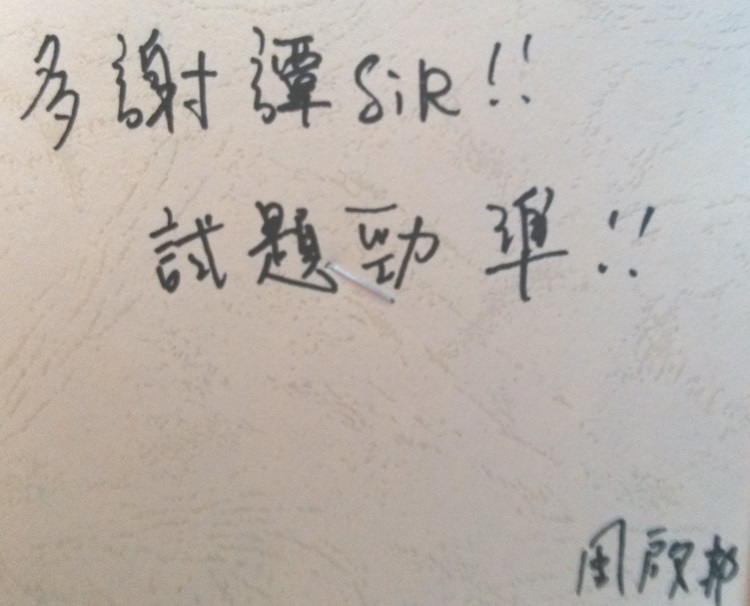 多謝譚SiR!!
試題勁準!!
周啟邦